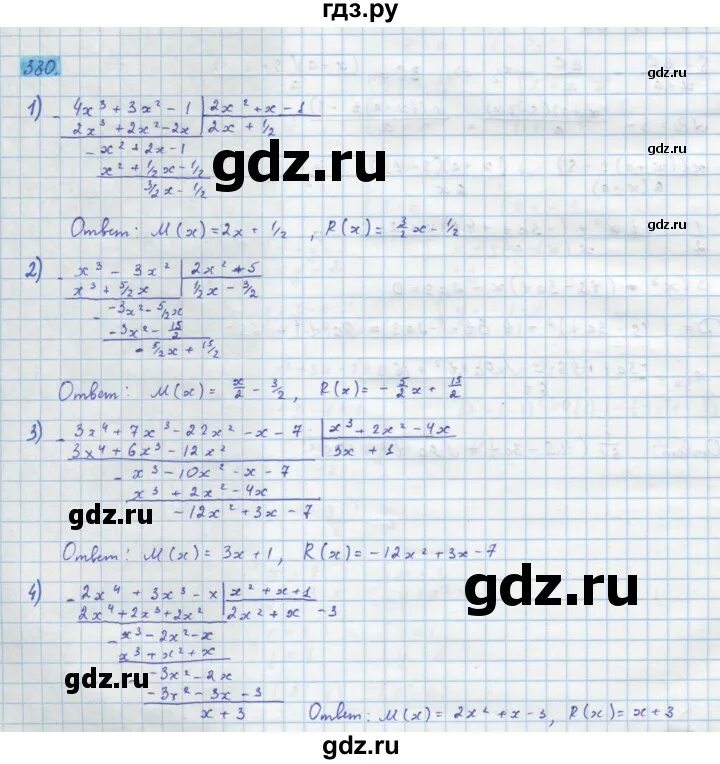 гдз.ру
380.
gdz.ru
1) - 4x³ + 3x² - 1 | 2x² + x - 1
2x³ + 2x² - 2x | 2x + 1/2
gdz.ru
- x² + 2x - 1
x² + 1/2 x - 1/2
3/2 x - 1/2
gdz.ru
Ответ: M(x) = 2x + 1/2, R(x) = 3/2 x - 1/2
gdz.ru
2) - x³ - 3x² | 2x² + 5
x³ + 5/2 x | 1/2 x - 3/2
- -3x² - 5/2 x
-3x² - 15/2
- 5/2 x + 15/2
Ответ: M(x) = x/2 - 3/2, R(x) = - 5/2 x + 15/2
3) - 3x⁴ + 7x³ - 22x² - x - 7 | x³ + 2x² - 4x
3x⁴ + 6x³ - 12x² | 3x + 1
- x³ - 10x² - x - 7
x³ + 2x² - 4x
gdz.ru
-12x² + 3x - 7
Ответ: M(x) = 3x + 1, R(x) = -12x² + 3x - 7
gdz.ru
4) - 2x⁴ + 3x³ - x | x² + x + 1
2x⁴ + 2x³ + 2x² | 2x² + x - 3
- x³ - 2x² - x
x³ + x² + x
gdz.ru
- -3x² - 2x
-3x² - 3x - 3
x + 3
Ответ: M(x) = 2x² + x - 3, R(x) = x + 3
gdz.ru